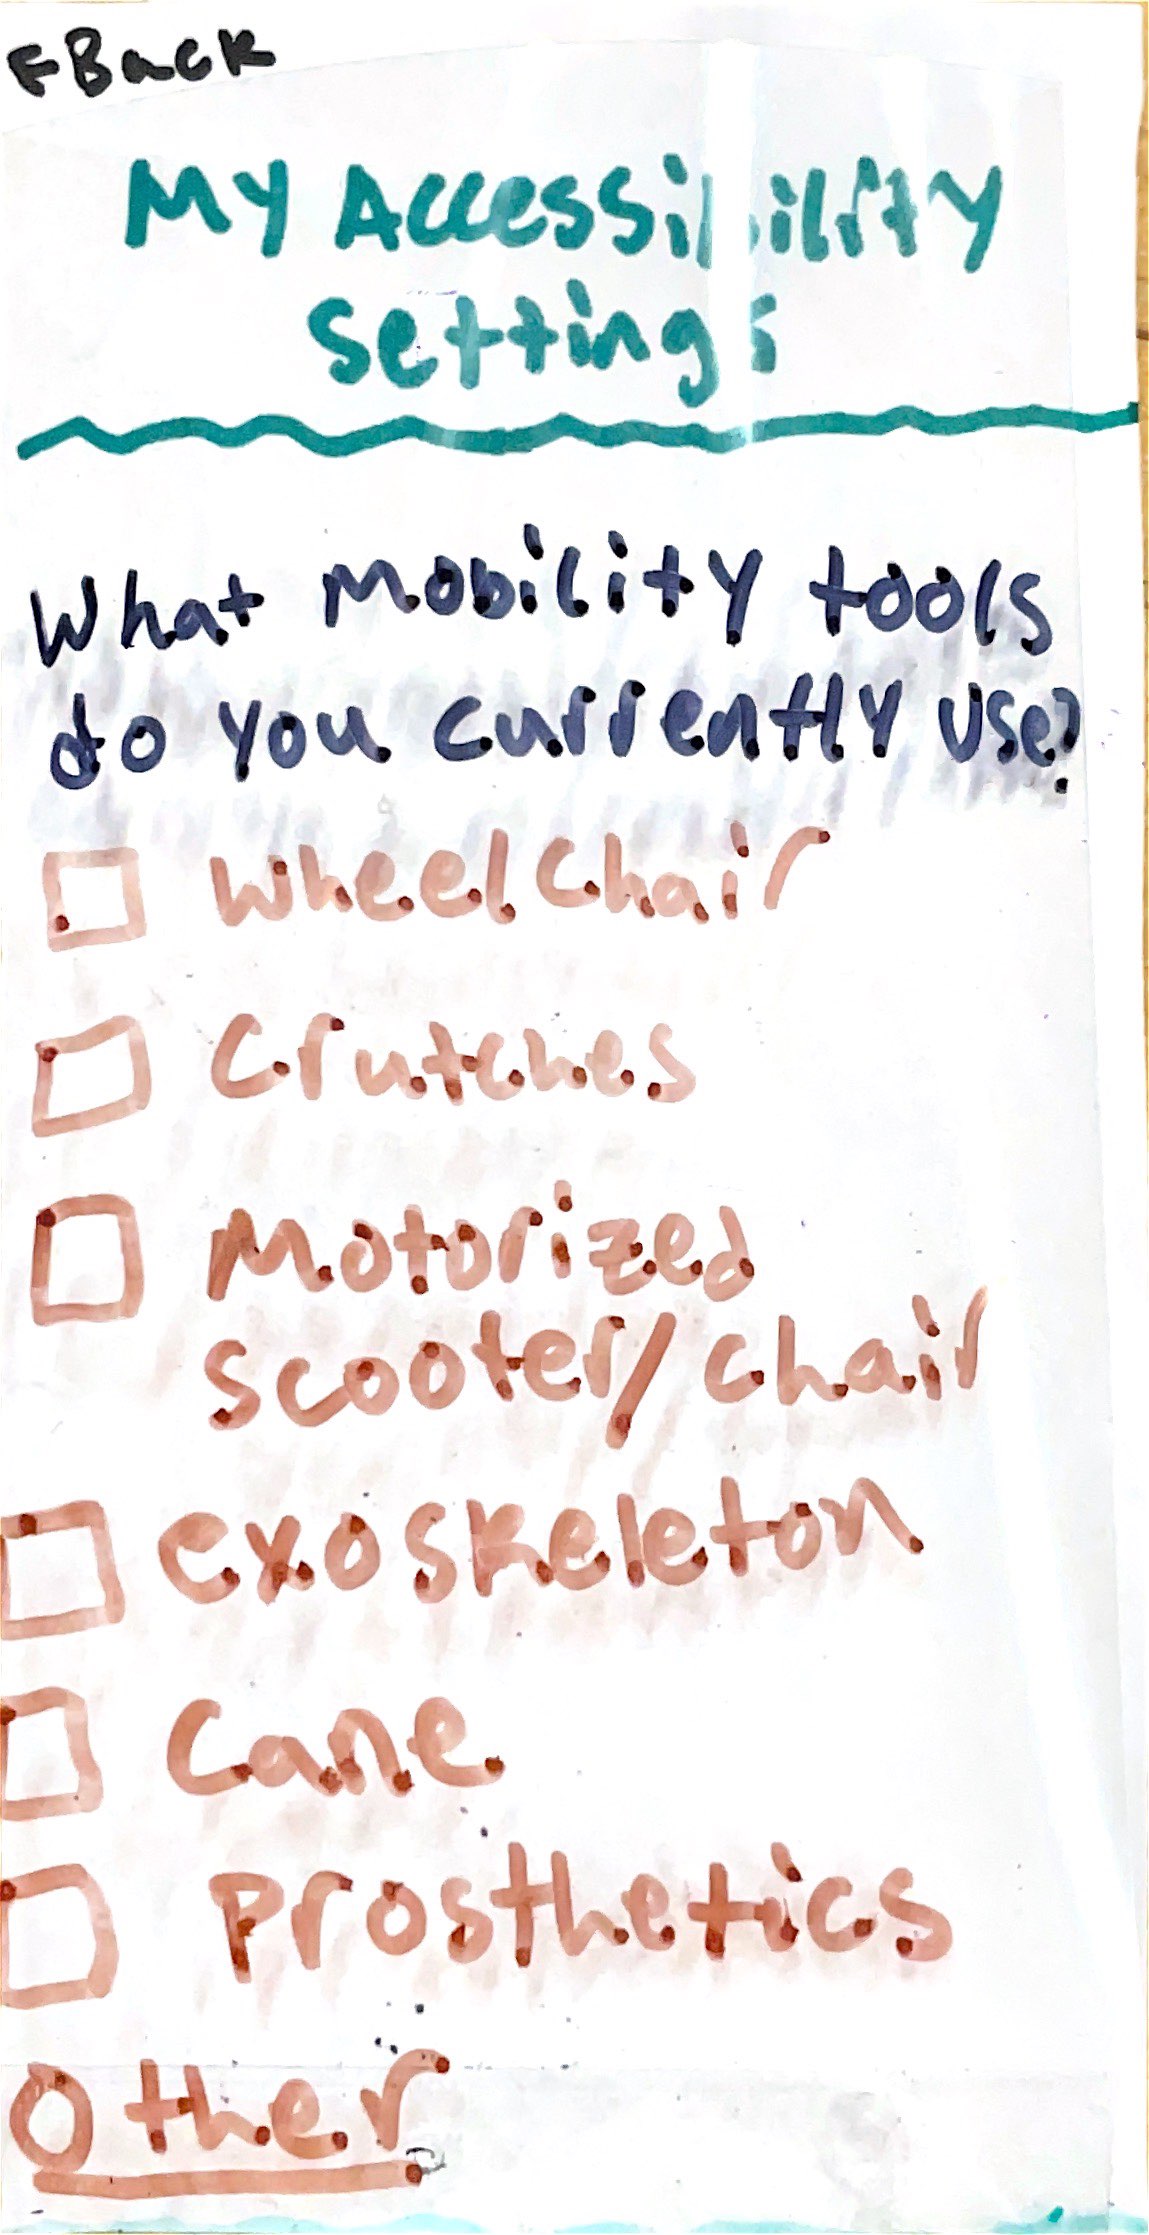 ←Back
My Accessibility
Settings
What mobility tools
do you currently use?
Wheelchair
Crutches
Motorized
scooter/chair
exoskeleton
Cane
Prosthetics
Other